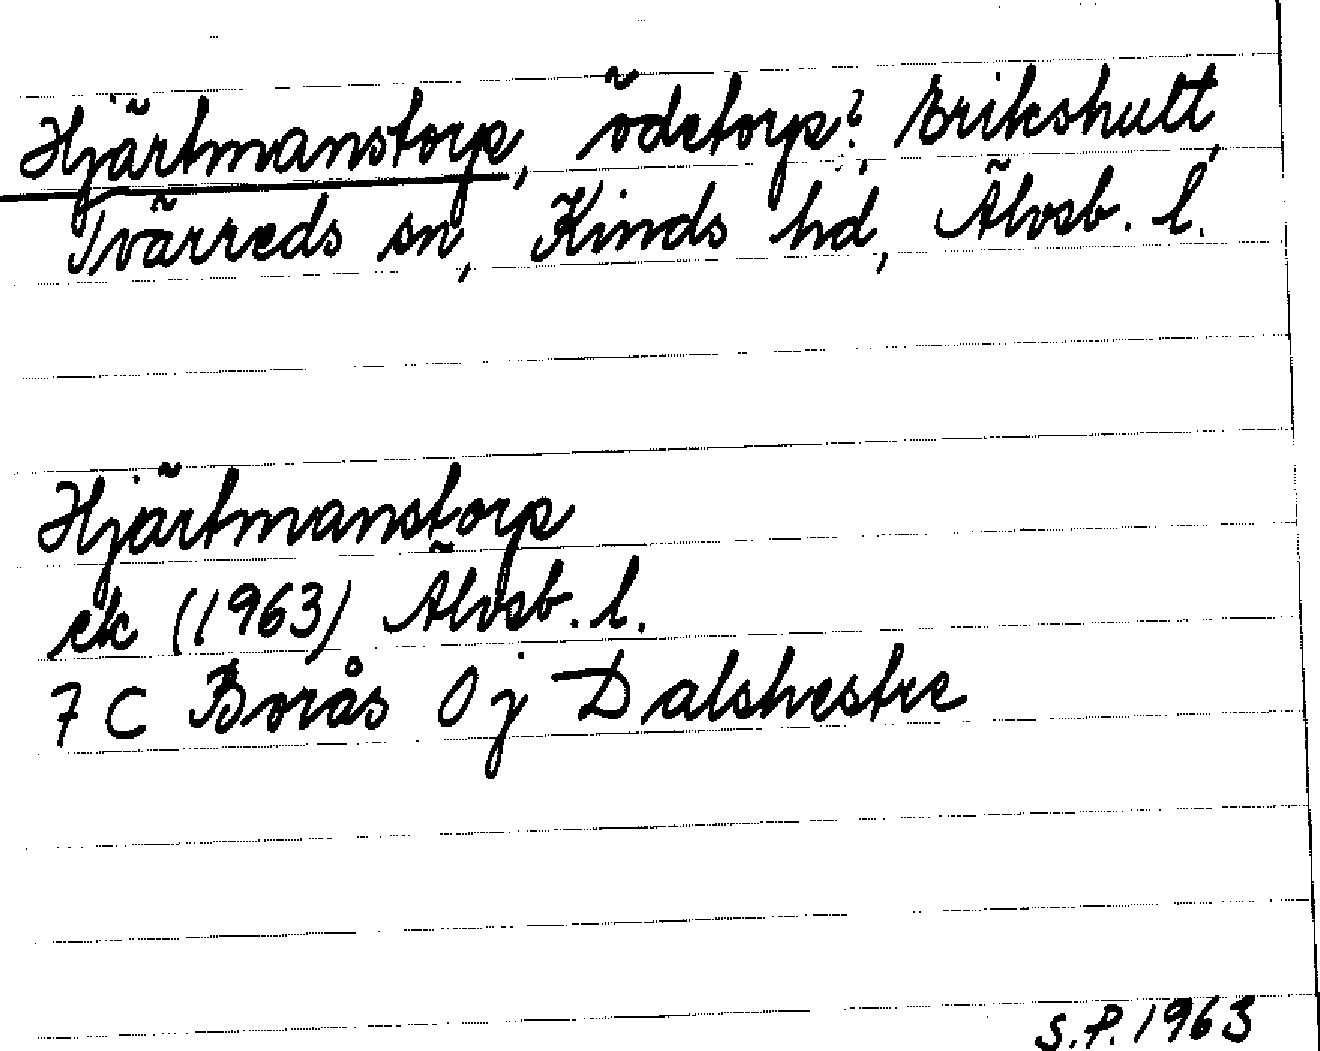 Hjärtmanstorp, ödetorp?, Erikshult,
Tvärreds sn, Kinds hd, Älvsb. l.
Hjärtmanstorp
ek (1963) Älvsb. l.
7 C Borås 0 j Dalshestre
S.P. 1963